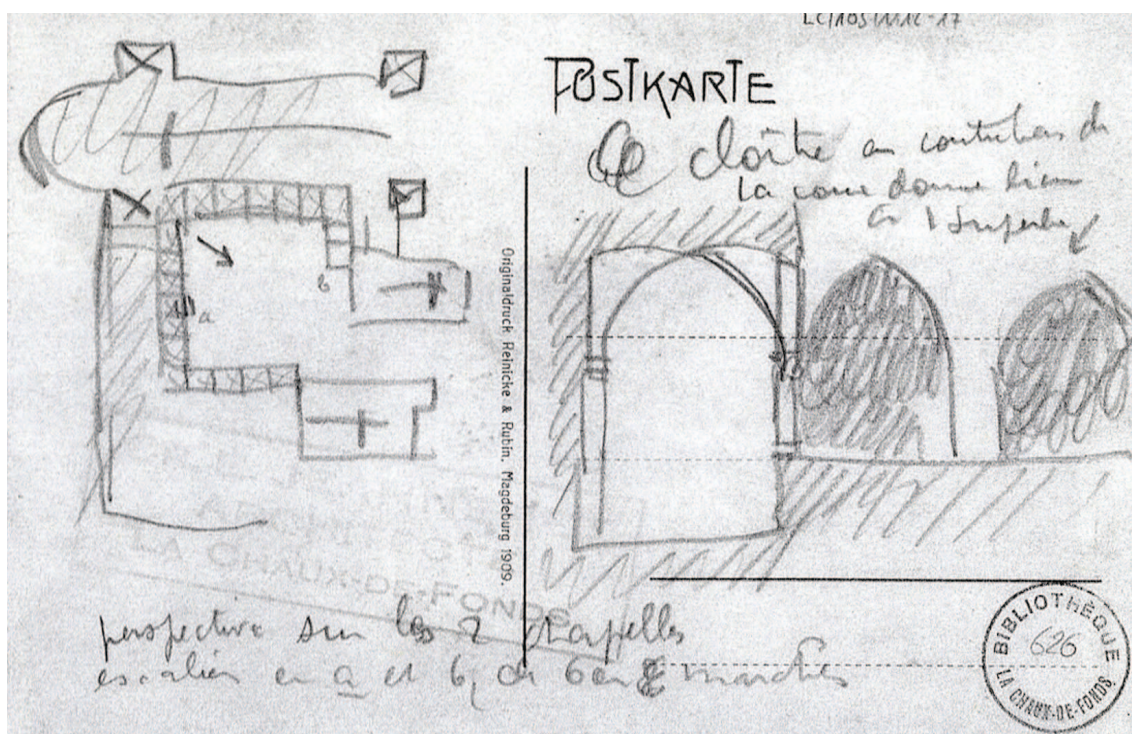 LC/105/1112-17
POSTKARTE
Ce cloître en contrebas de
la cour donne bien
et superbe
a
b
Originaldruck Reinicke & Rubin. Magdeburg 1909.
ARCHITECTE
LA CHAUX-DE-FONDS
perspective sur les 2 chapelles
escalier en a et b, de 6 en marches
BIBLIOTHÈQUE
626
LA CHAUX-DE-FONDS